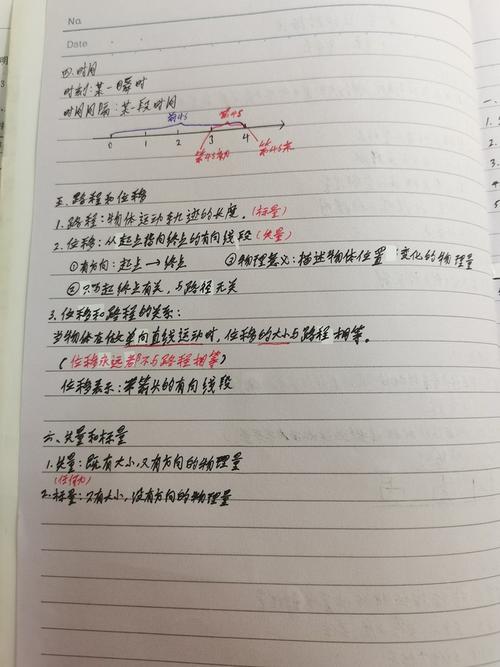 No.
Date
四.时间
时刻:某一瞬时
时间间隔:某一段时间
前4s 第4s
0 1 2 3 4
第4s初 第4s末
五.路程和位移
1.路程:物体运动轨迹的长度.(标量)
2.位移:从起点指向终点的有向线段(矢量)
①有方向:起点→终点 ③物理意义:描述物体位置变化的物理量
②只与起终点有关,与路径无关
3.位移和路程的关系:
当物体在做单向直线运动时,位移的大小与路程相等。
(位移永远都不与路程相等)
位移表示:带箭头的有向线段
六.矢量和标量
1.矢量:既有大小,又有方向的物理量
2.标量:只有大小,没有方向的物理量